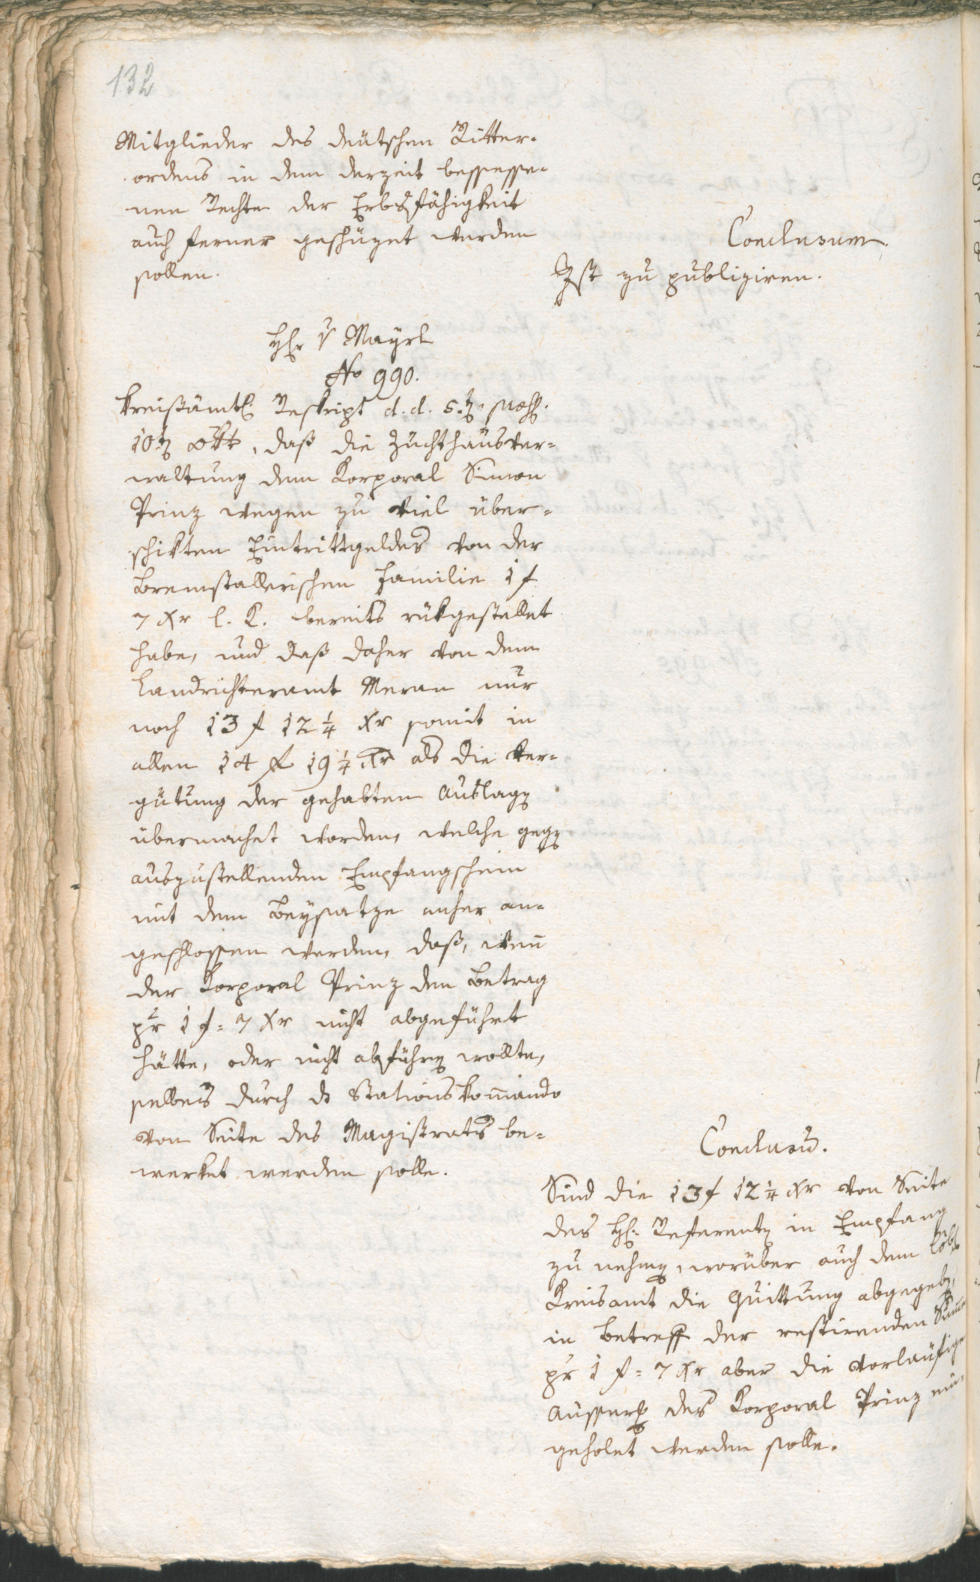 132
Mitglieder des deutschen Ritter-
ordens in dem derzeit bessesse-
nen Rechte der Erbsfähigkeit
auch ferner geschüzet werden
sollen.
Conclusum
Ist zu publiziren.
H. v Mayrl
No 990.
Kreisämtl. Reskript d. d. 5. praes.
10 8br, daß die Zuchthausver=
waltung dem Korporal Simon
Prinz wegen zu viel über=
schikten Eintrittgeldes von der
Bremstallerischen Familie 1 f
7 Xr C. M. bereits rükgestellet
habe, und daß daher von dem
Landrichteramt Meran nur
noch 13 f 12 1/4 Xr somit in
allen 14 f 19 1/4 Xr als die Ver=
gütung der gehabten Auslagen
übermachet worden, welche gegen
auszustellenden Empfangschein
mit dem Beysatze anher an=
geschlossen werden, daß, wenn
der Korporal Prinz den Betrag
pr 1 f = 7 Xr nicht abgeführt
hätte, oder nicht abführen wollte,
selbes durch das Stationskommando
von Seite des Magistrats be=
werket werden solle.
Conclusum.
Sind die 13 f 12 1/4 Xr von Seite
des H. Referenten in Empfang
zu nehmen, worüber auch dem Löbl
Kreisamt die Quittung abgegeben,
in Betreff der restirenden Summe
pr 1 f = 7 Xr aber die vorläufige
Äusserung des Korporal Prinz ein=
geholet werden solle.